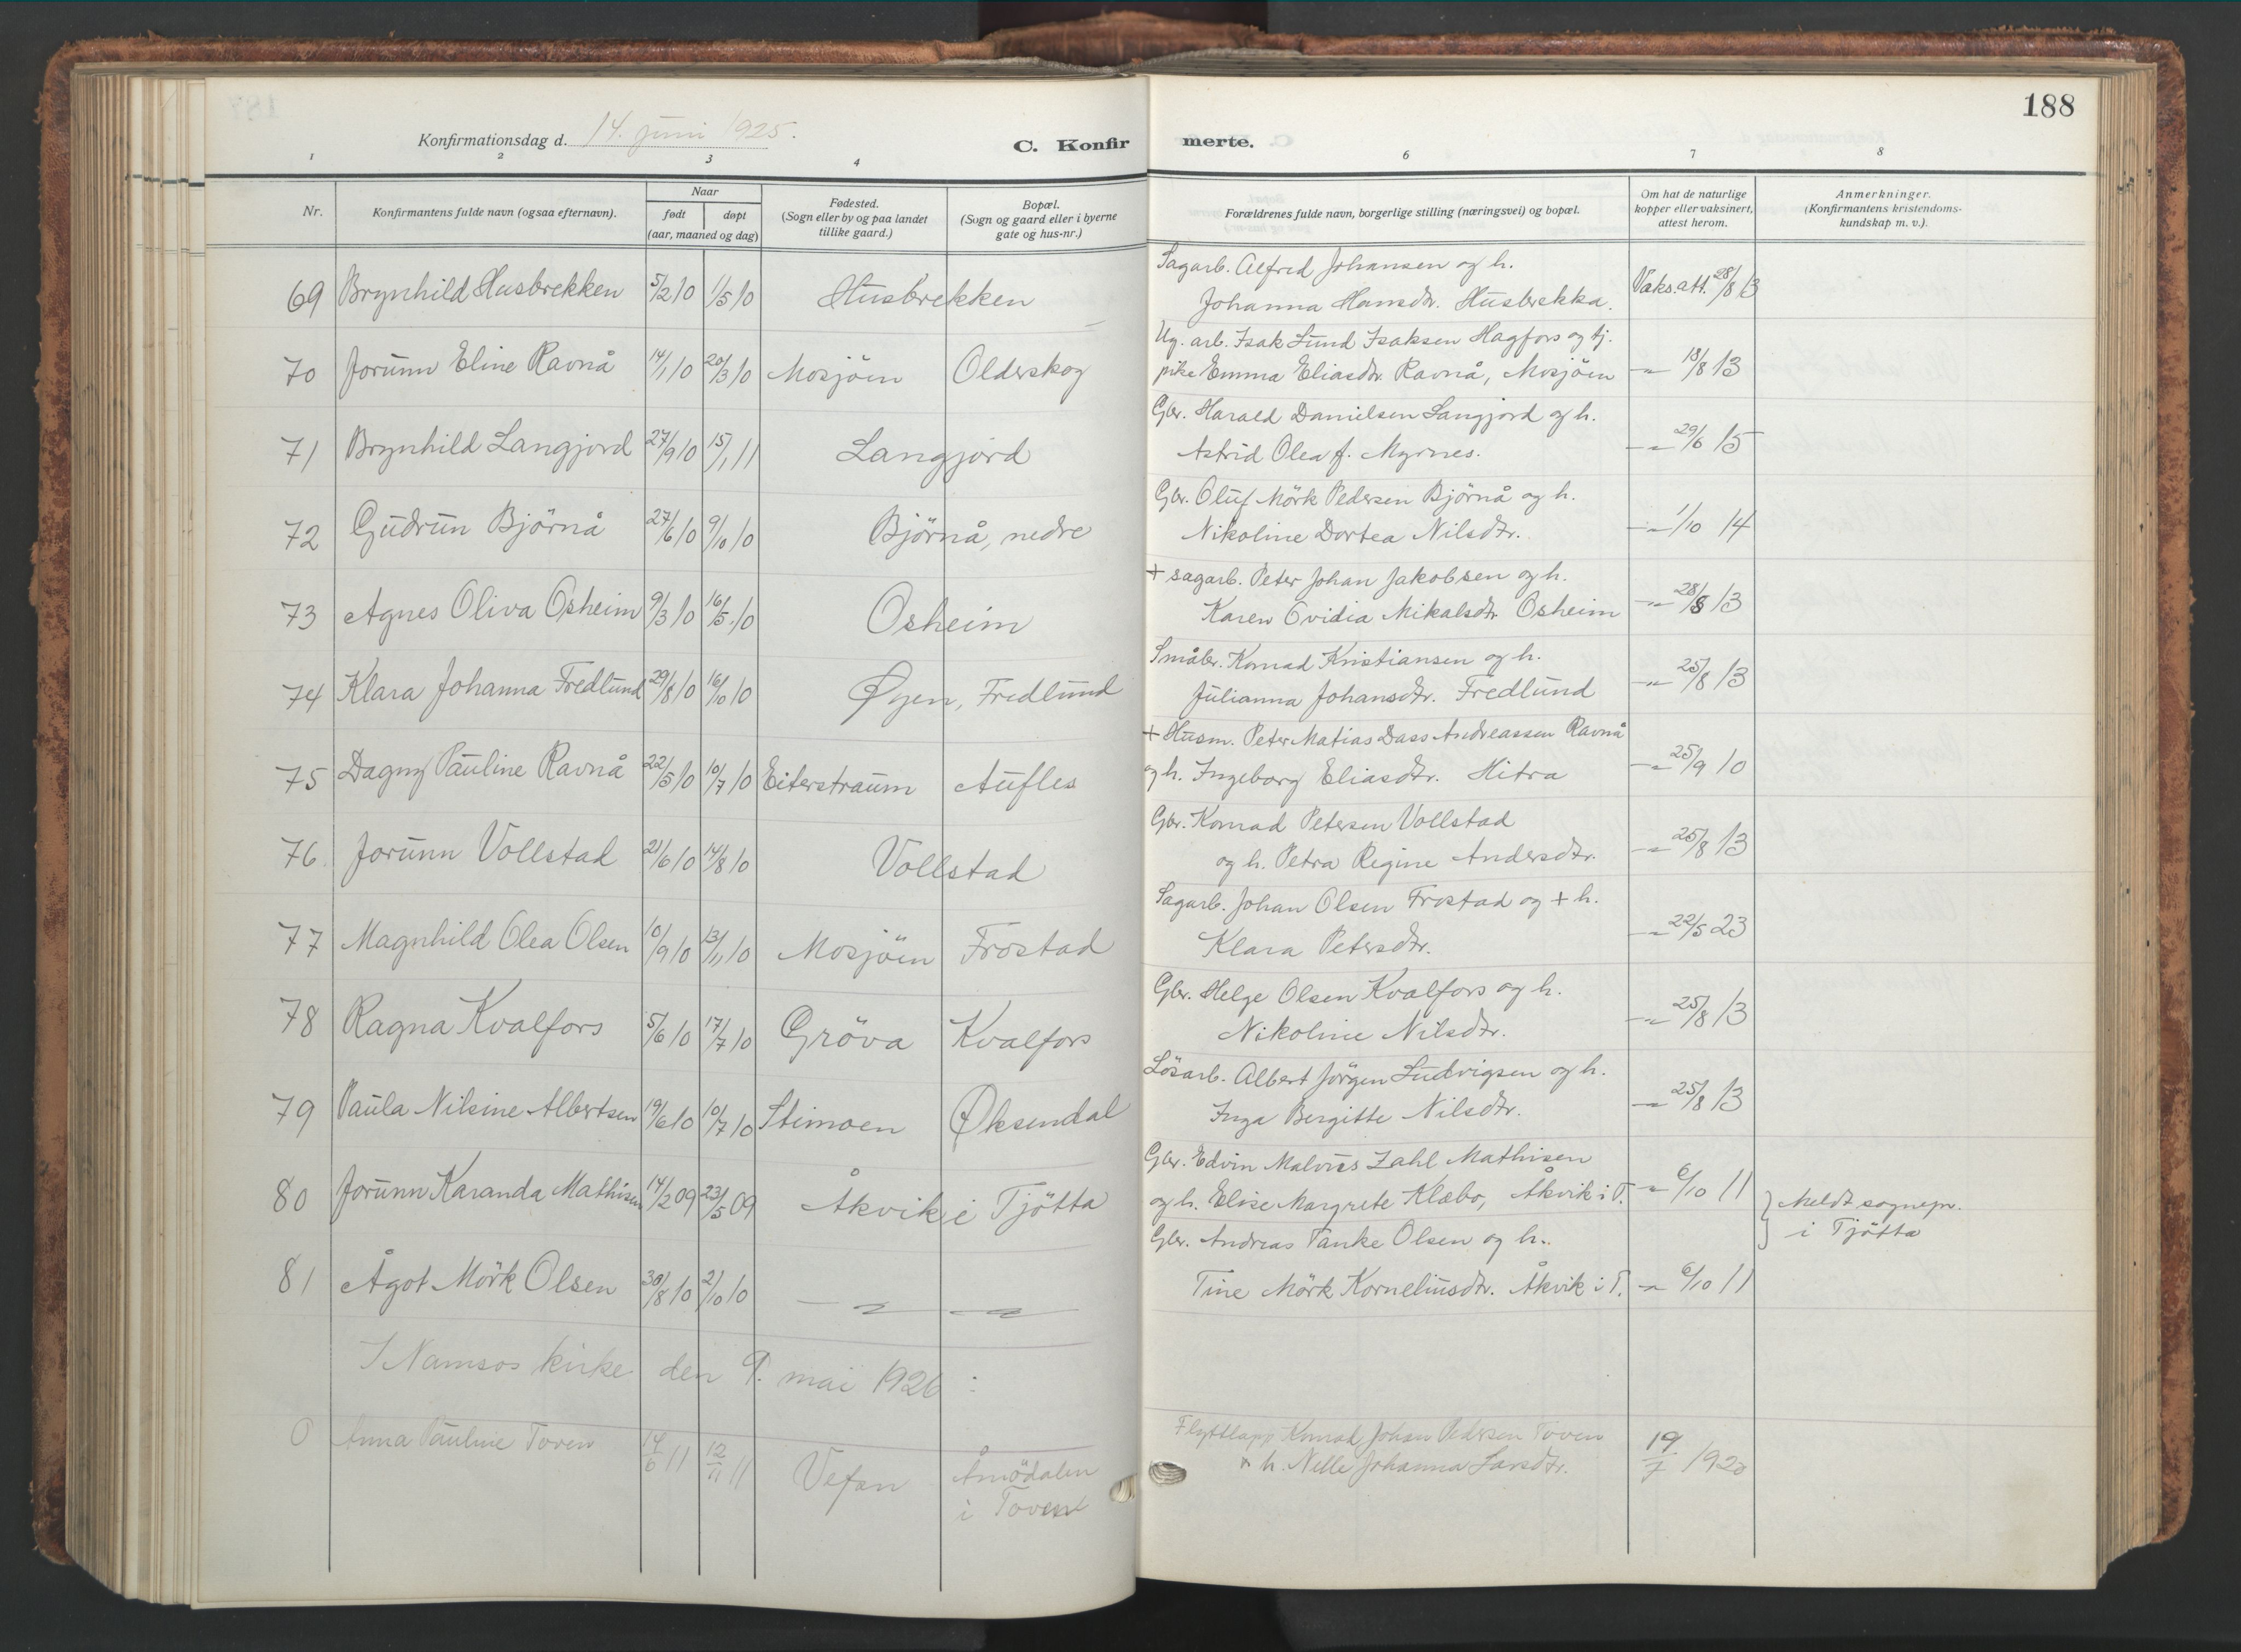 188
Konfirmationsdag d. 14. juni 1925.
C. Konfirmerte.
1 2 3 4 6 7 8
Nr.
Konfirmantens fulde navn (ogsaa efternavn).
Naar
født døpt
(aar, maaned og dag)
Fødested.
(Sogn eller by og paa landet
tillike gaard.)
Bopæl.
(Sogn og gaard eller i byerne
gate og hus-nr.)
Forældrenes fulde navn, borgerlige stilling (næringsvei) og bopæl.
Om hat de naturlige
kopper eller vaksinert,
attest herom.
Anmerkninger.
(Konfirmantens kristendoms-
kundskap m. v.).
69 Brynhild Husbrekken 5/2 10 1/5 10 Husbrekken
Sagarb. Alfred Johansen og h.
Johanna Hansdtr. Husbrekka. Vaks.att. 28/8 13
70 Jorunn Eline Ravnå 14/1 10 20/3 10 Mosjöen Olderskog
Ug. arb. Isak Lund Isaksen Hagfors og tj.
pike Emma Eliasdtr. Ravnå, Mosjöen —„— 18/8 13
71 Brynhild Langjord 27/9 10 15/1 11 Langjord
Gbr. Harald Danielsen Langjord og h.
Astrid Olea f. Myrnes. —„— 29/6 15
72 Gudrun Björnå 27/6 10 9/10 10 Björnå, nedre
Gbr. Oluf Mörk Pedersen Björnå og h.
Nikoline Dortea Nilsdtr. —„— 1/10 14
73 Agnes Oliva Osheim 9/3 10 16/5 10 Osheim
+ sagarb. Peter Johan Jakobsen og h.
Karen Ovidia Mikalsdtr. Osheim —„— 28/8 13
74 Klara Johanna Fredlund 29/8 10 16/10 10 Øyen, Fredlund
Småbr. Konrad Kristiansen og h.
Julianna Johansdtr. Fredlund —„— 25/8 13
75 Dagny Pauline Ravnå 22/5 10 10/7 10 Eiterstraum Aufles
+ Husm. Peter Matias Dass Andreassen Ravnå
og h. Ingeborg Eliasdtr. Hitra —„— 25/9 10
76 Jorunn Vollstad 21/6 10 14/8 10 Vollstad
Gbr. Konrad Petersen Vollstad
og h. Petra Regine Andersdtr. —„— 25/8 13
77 Magnhild Olea Olsen 10/9 10 13/11 10 Mosjöen Frostad
Sagarb. Johan Olsen Frostad og + h.
Klara Petersdtr. —„— 22/5 23
78 Ragna Kvalfors 5/6 10 17/7 10 Gröva Kvalfors
Gbr. Helge Olsen Kvalfors og h.
Nikoline Nilsdtr. —„— 25/8 13
79 Paula Nilsine Albertsen 19/6 10 10/7 10 Stimoen Øksendal
Lösarb. Albert Jörgen Ludvigsen og h.
Inga Bergitte Nilsdtr. —„— 25/8 13
80 Jorunn Karanda Mathisen 14/2 09 23/5 09 Åkvik i Tjötta
Gbr. Edvin Malvies Zahl Mathisen
og h. Elise Margrete Klæbo, Åkvik i T. —„— 6/10 11
Meldt sognepr.
i Tjötta
81 Ågot Mörk Olsen 30/8 10 2/10 10 —„— —„—
Gbr. Andreas Tanke Olsen og h.
Tine Mörk Korneliusdtr. Åkvik i T. —„— 6/10 11
I Namsos kirke den 9. mai 1926 :
0 Anna Pauline Toven 14/6 11 12/11 11 Vefsn Åmödalen
i Toven
Flyttlapp Konrad Johan Pedersen Toven
+ h. Nelle Johanna Larsdtr. 19/7 1920